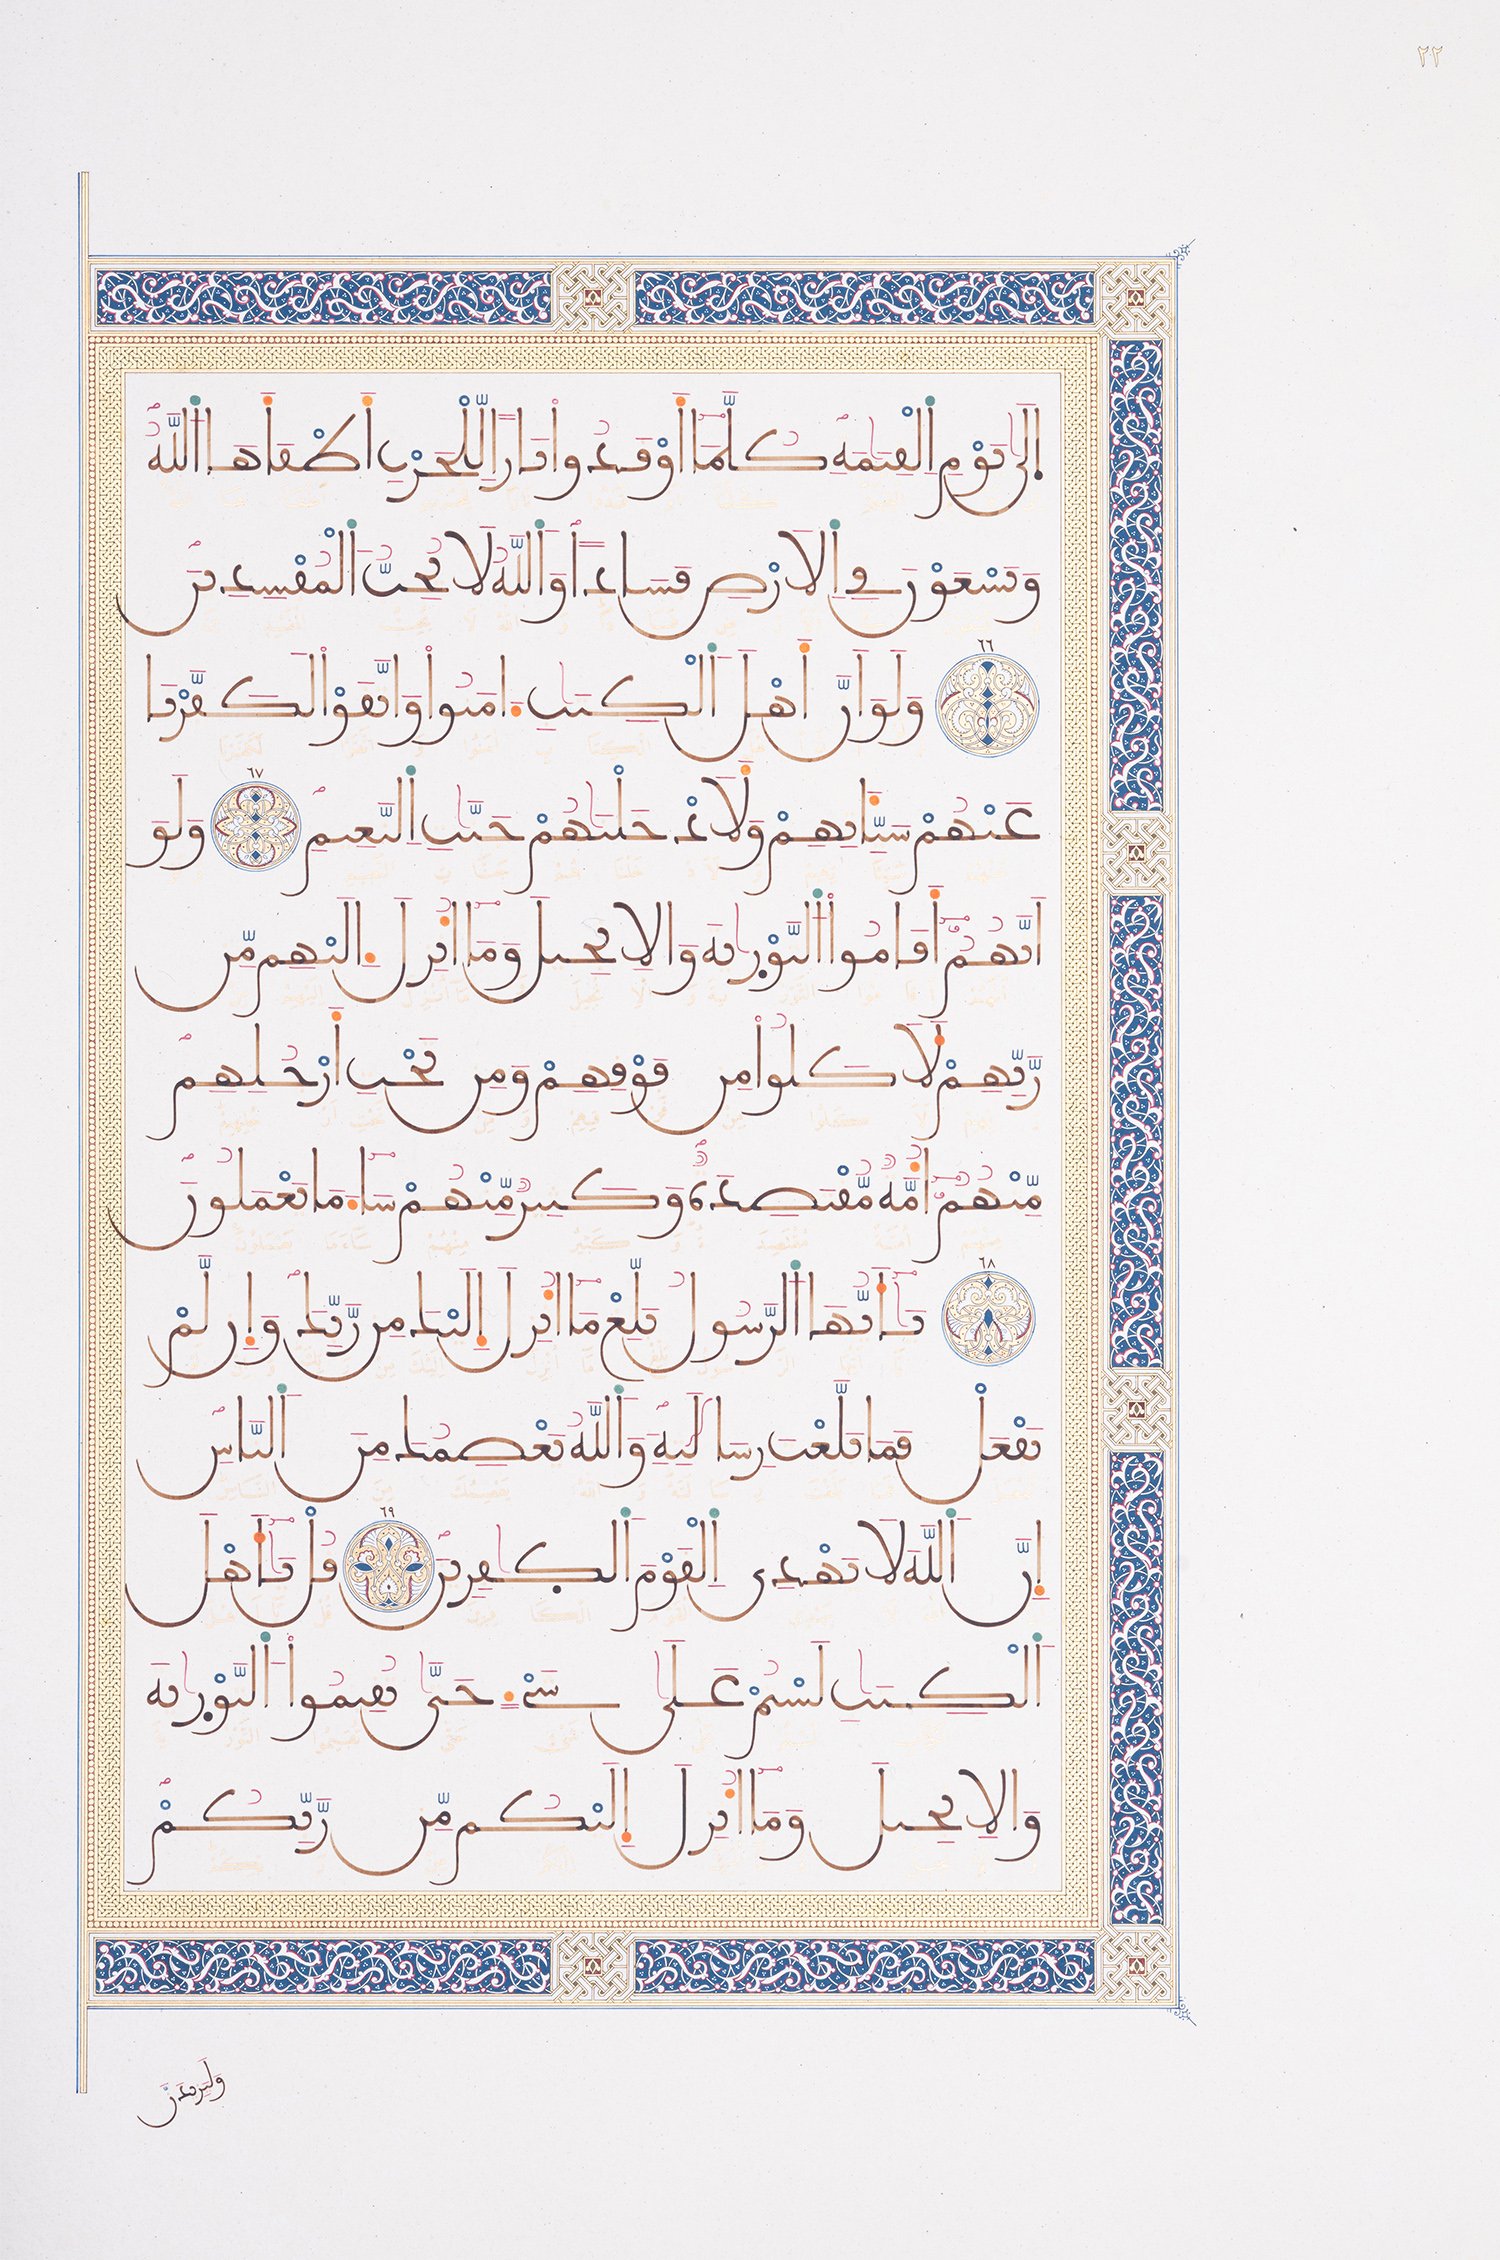 ٢٢
إِلَىٰ يَوْمِ الْقِيَٰمَةِ كُلَّمَا أَوْقَدُوا نَارًا لِّلْحَرْبِ أَطْفَأَهَا اللَّهُ
وَيَسْعَوْنَ فِي الْأَرْضِ فَسَادًا وَاللَّهُ لَا يُحِبُّ الْمُفْسِدِينَ
٦٦ وَلَوْ أَنَّ أَهْلَ الْكِتَٰبِ ءَامَنُوا وَاتَّقَوْا لَكَفَّرْنَا
عَنْهُمْ سَيِّـَٔاتِهِمْ وَلَأَدْخَلْنَٰهُمْ جَنَّٰتِ النَّعِيمِ ٦٧ وَلَوْ
أَنَّهُمُ أَقَامُوا التَّوْرَىٰةَ وَالْإِنجِيلَ وَمَا أُنزِلَ إِلَيْهِم مِّن
رَّبِّهِمْ لَأَكَلُوا مِن فَوْقِهِمْ وَمِن تَحْتِ أَرْجُلِهِم
مِّنْهُمُ أُمَّةٌ مُّقْتَصِدَةٌ وَكَثِيرٌ مِّنْهُمْ سَاءَ مَا يَعْمَلُونَ
٦٨ يَٰأَيُّهَا الرَّسُولُ بَلِّغْ مَا أُنزِلَ إِلَيْكَ مِن رَّبِّكَ وَإِن لَّمْ
تَفْعَلْ فَمَا بَلَّغْتَ رِسَالَٰتِهِ وَاللَّهُ يَعْصِمُكَ مِنَ النَّاسِ
إِنَّ اللَّهَ لَا يَهْدِي الْقَوْمَ الْكَٰفِرِينَ ٦٩ قُلْ يَٰأَهْلَ
الْكِتَٰبِ لَسْتُمْ عَلَىٰ شَيْءٍ حَتَّىٰ تُقِيمُوا التَّوْرَىٰةَ
وَالْإِنجِيلَ وَمَا أُنزِلَ إِلَيْكُم مِّن رَّبِّكُمْ
وَلَيَزِيدَنَّ